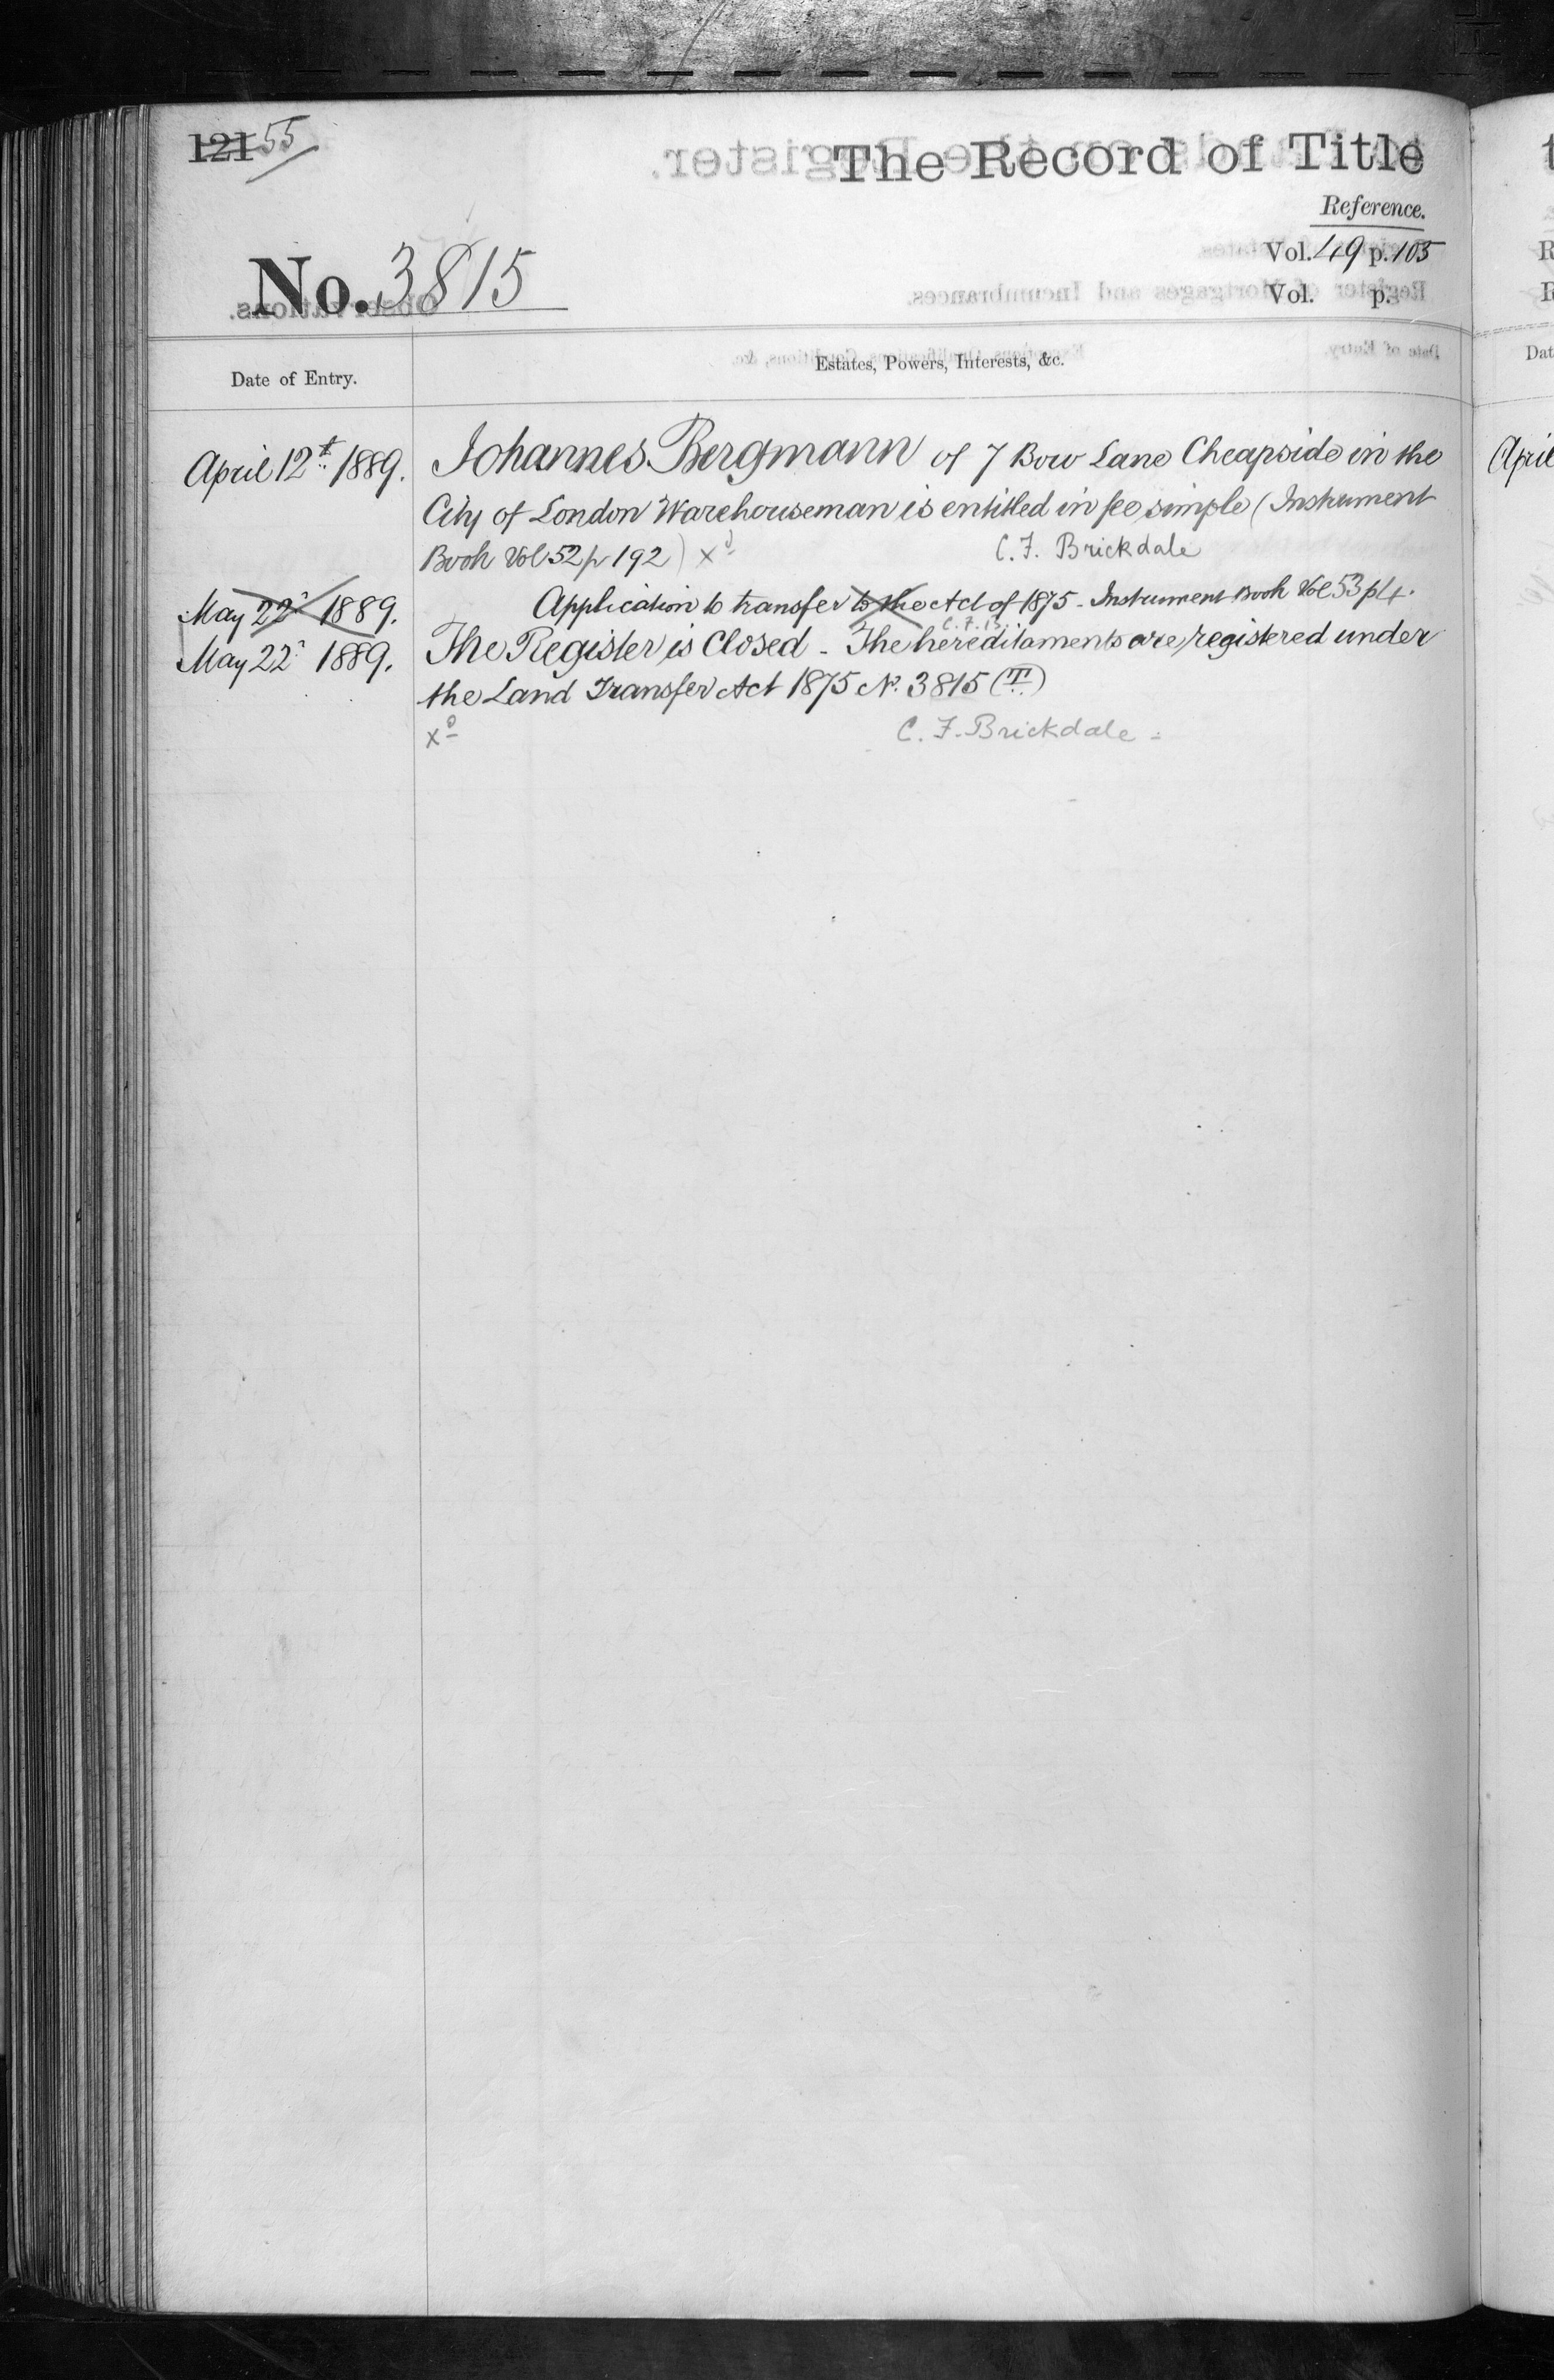 121 55
The Record of Title
Reference.
No. 3815
Vol. 49 p. 105
Vol. p.
Date of Entry.
Estates, Powers, Interests, &c.
April 12th 1889.
Johannes Bergmann of 7 Bow Lane Cheapside in the
City of London Warehouseman is entitled in fee simple (Instrument
Book Vol 52 p 192) xd
C. F. Brickdale
May 22d 1889.
Application to transfer to the Act of 1875 - Instrument Book Vol 53 p 4.
C. F. B.
May 22d 1889.
The Register is Closed - The hereditaments are registered under
the Land Transfer Act 1875 No. 3815 (T)
xd
C. F. Brickdale